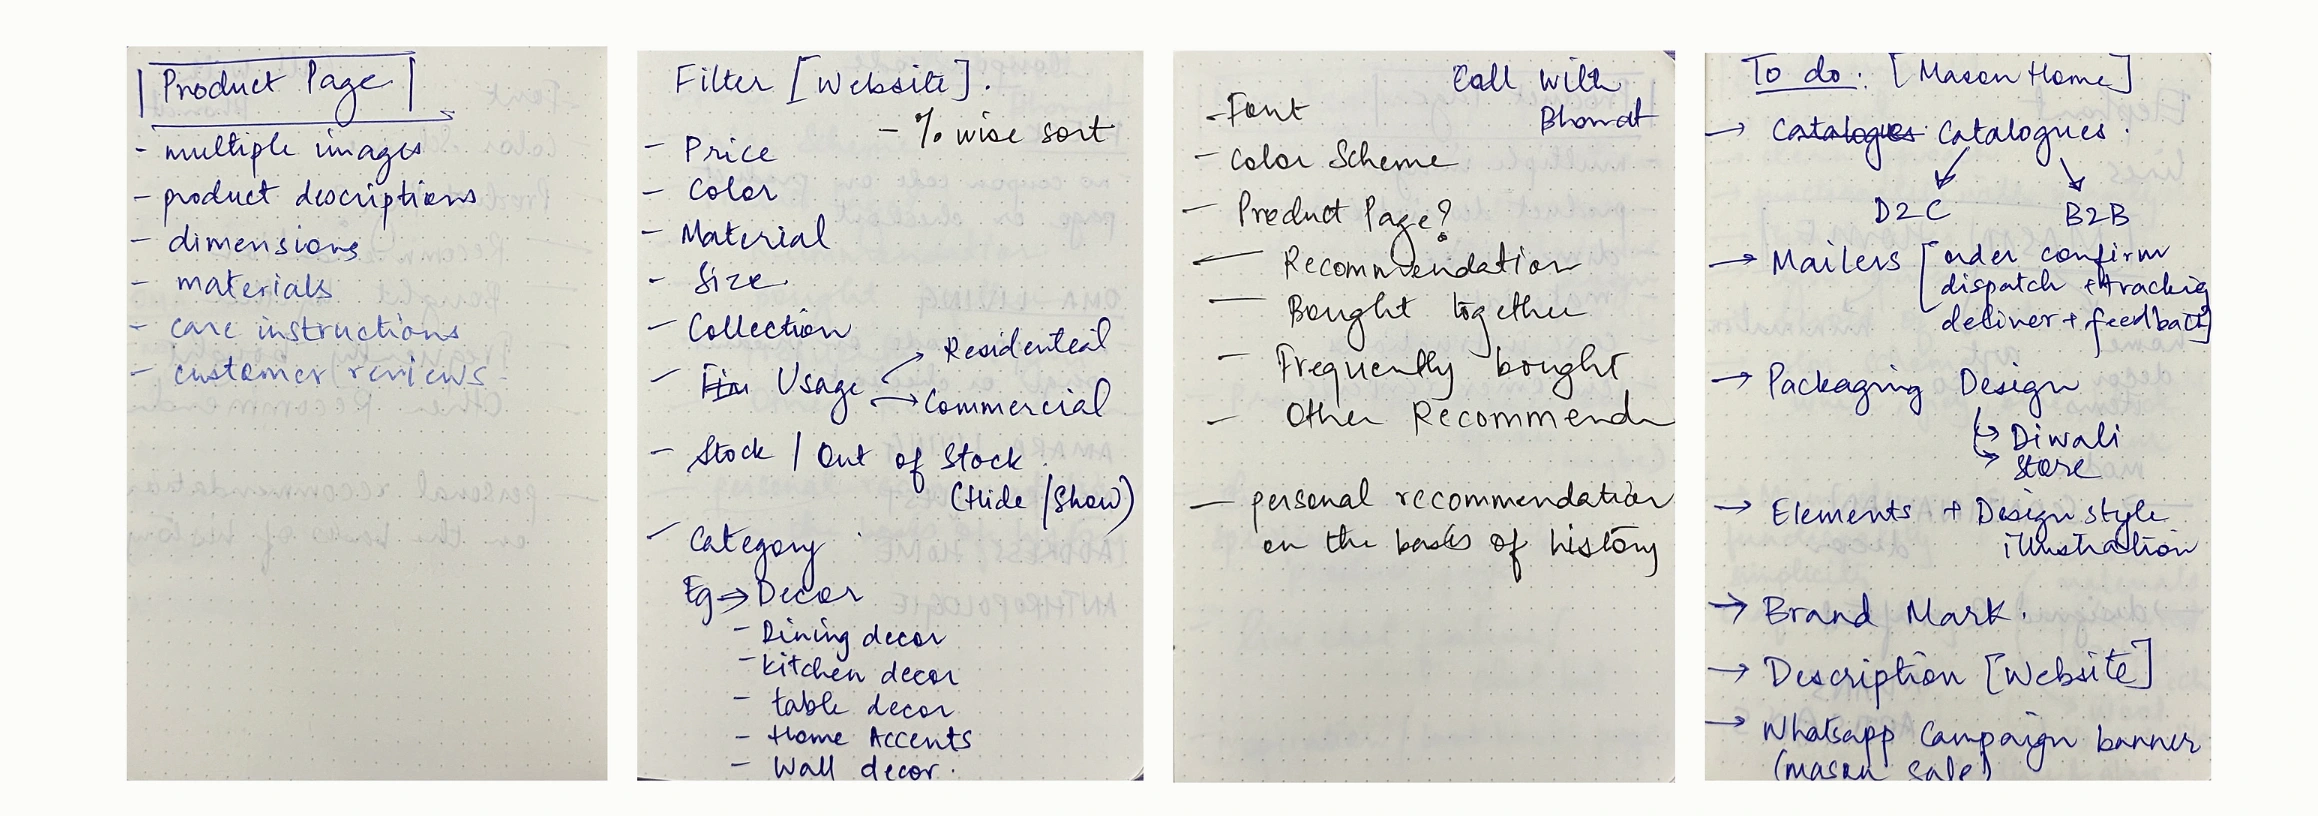 Product Page
- multiple images
- product descriptions
- dimensions
- materials
- care instructions
- customer reviews
Filter [Website].
- % wise sort
- Price
- Color
- Material
- Size
- Collection
- Usage → Residential
→ Commercial
- Stock / Out of Stock.
(Hide / Show)
- Category
Eg → Decor
- Dining decor
- kitchen decor
- table decor
- Home Accents
- Wall decor.
Call with
- Font
- Color Scheme
- Product Page?
- Recommendation
- Bought together
- Frequently bought
- Other Recommend
- personal recommendation
on the basis of history
To do: [Mason Home]
→ Catalogues Catalogues.
D2C B2B
→ Mailers [order confirm
dispatch + tracking
deliver + feedback]
→ Packaging Design
→ Diwali
→ Store
→ Elements + Design style
illustration
→ Brand Mark.
→ Description [Website]
→ Whatsapp Campaign banner
(mason sale)